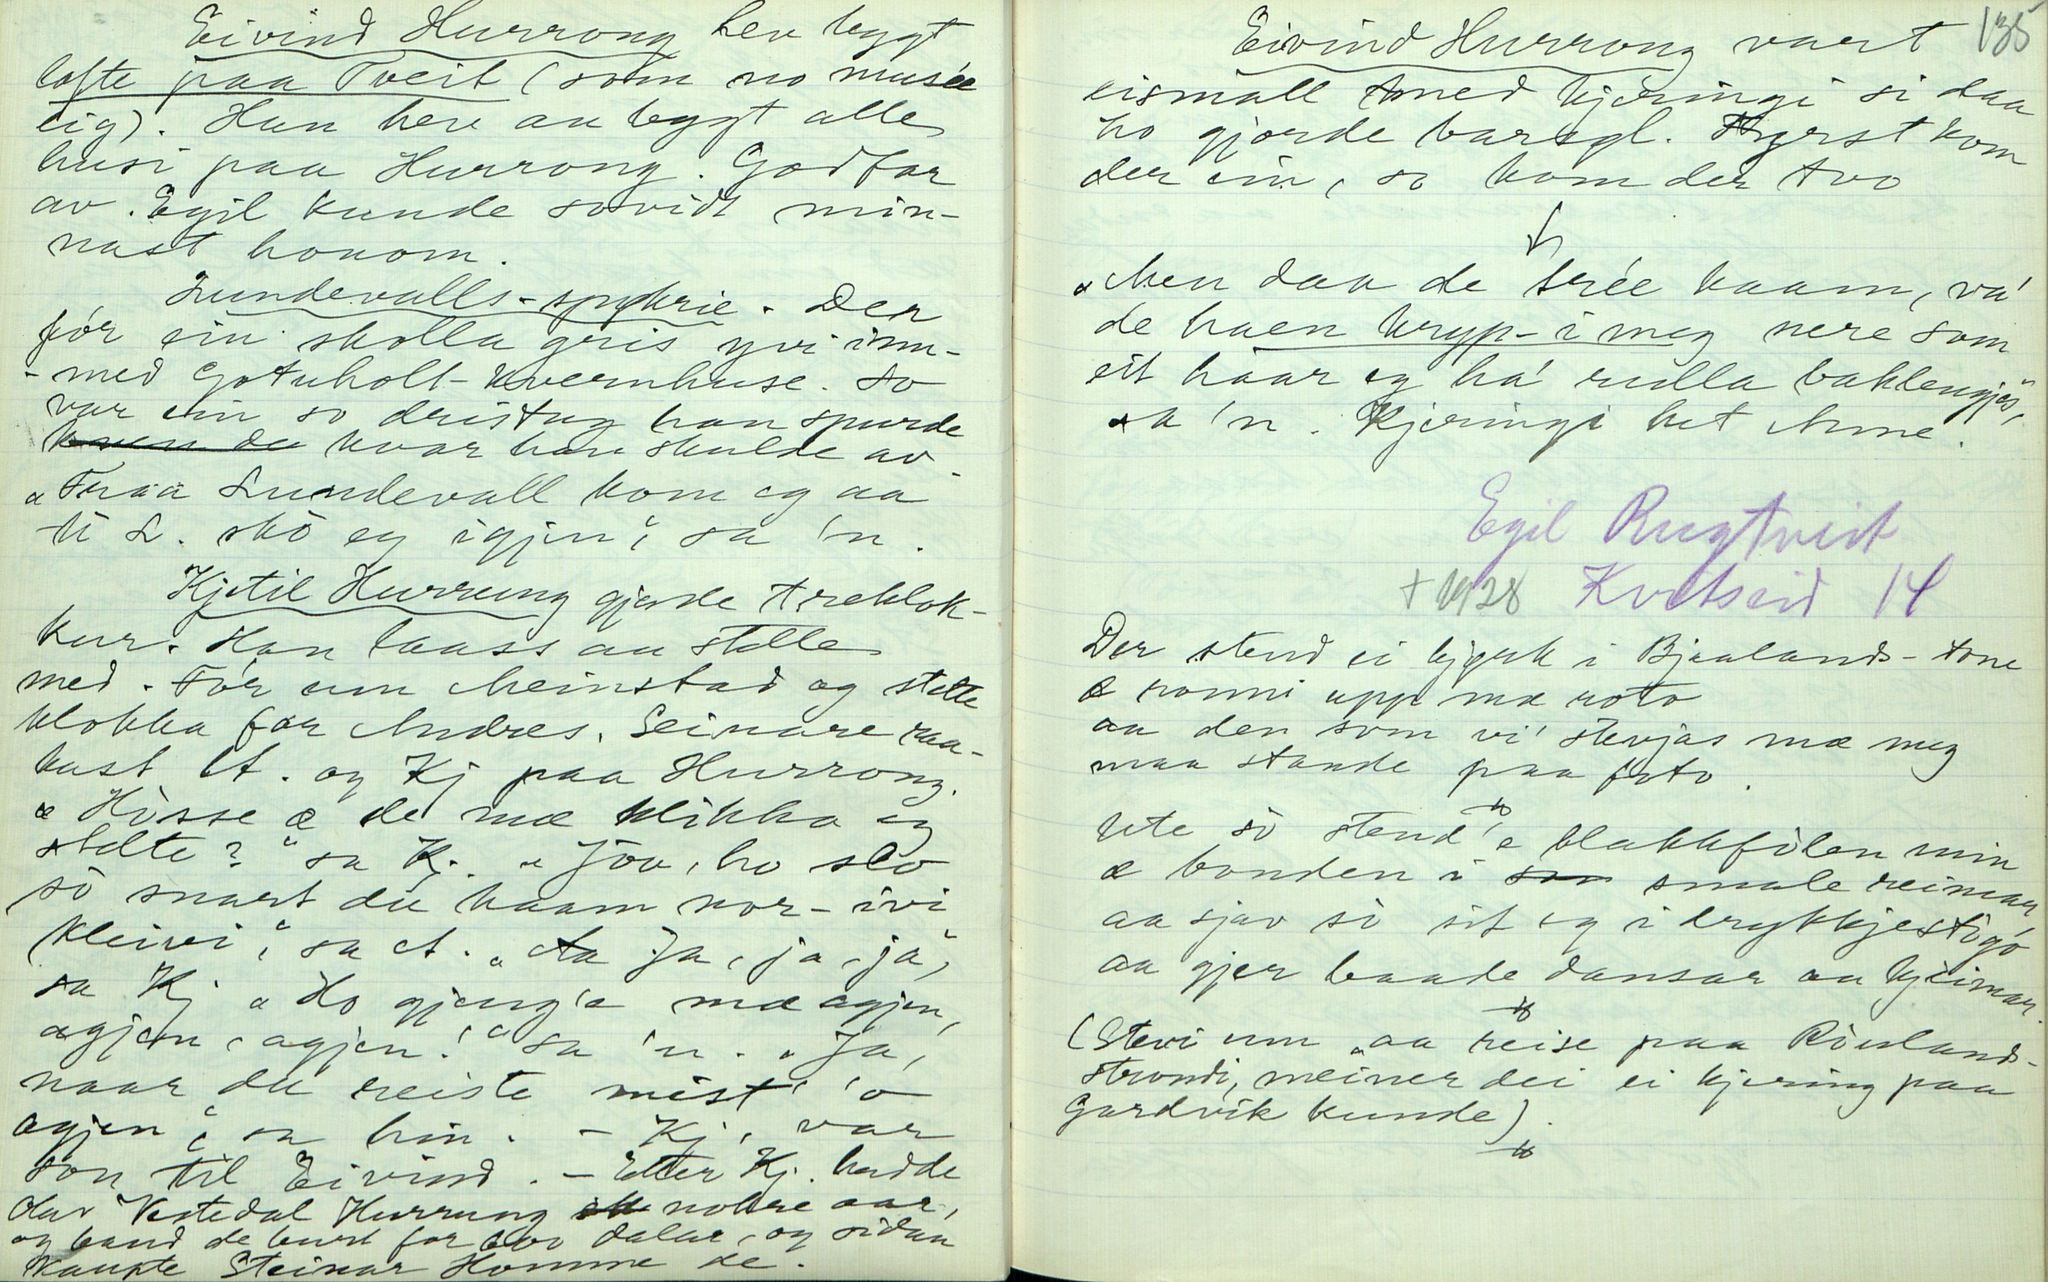 Eivind Hurrong hev bygt
lofte paa Tveit (som no musée
eig). Han heve au bygt alle
husi paa Hurrong. Godfar
av Egil kunde sovidt min-
nast honom.
Lundevalls-spukrie. Der
fór ein skolla gris yvi inn-
-med Gotuholt-kvernhuse. So
var ein so dristug han spurde
kven du hvar han skulde av.
„Fraa Lundevall kom eg aa
ti L. skò eg igjen", sa 'n.
Kjetil Hurrung gjorde treklok-
kur. Han laass au stelle
med. Fór um Meinstad og stelte
klokka for Andres. Seinare raa-
kast A. og Kj paa Hurrong.
„Hòsse æ de mæ klikka eg
stelte?" sa Kj. „Joo, ho slo
sò snart du kaam nor-ivi
kleivi", sa A. „Aa Ja, ja, ja",
sa Kj „Ho gjeng'e mæ agjen,
agjen, agjen!" sa 'n. „Ja,
naar du reiste mist' 'o
agjen", sa hin. – Kj. var
son til Eivind. – Etter Kj. hadde
Olav Vestedal Hurrung nokre aar,
og baud de burt for 600 dalar, og sidan
kaupte Steinar Homme de.
135
Eivind Hurrong vart
eismall med kjeringi si daa
ho gjorde barsgl. Fyrst kom
der ein, so kom der tvo
„Men daa de trée kaam, vá
de haen kryp-i meg nere som
eit háár eg há rulla baklengjes",
sa 'n. Kjeringi het Anne.
Egil Rugtveit
+ 1928 Kvitseid 14
Der stend ei kjyrk i Bjaalands-tone
æ ronni upp mæ roto
aa den som vi' stevjas mæ meg
maa stande paa foto.
Ute sò stend'e blakkfòlen min
æ bonden i smale reimar,
aa sjav sò sit eg i drykkjestògó
aa gjer baade dansar aa kjeimar.
(Stevi um „aa reise paa Roulands-
strondi, meiner dei ei kjering paa
Gardvik kunde).